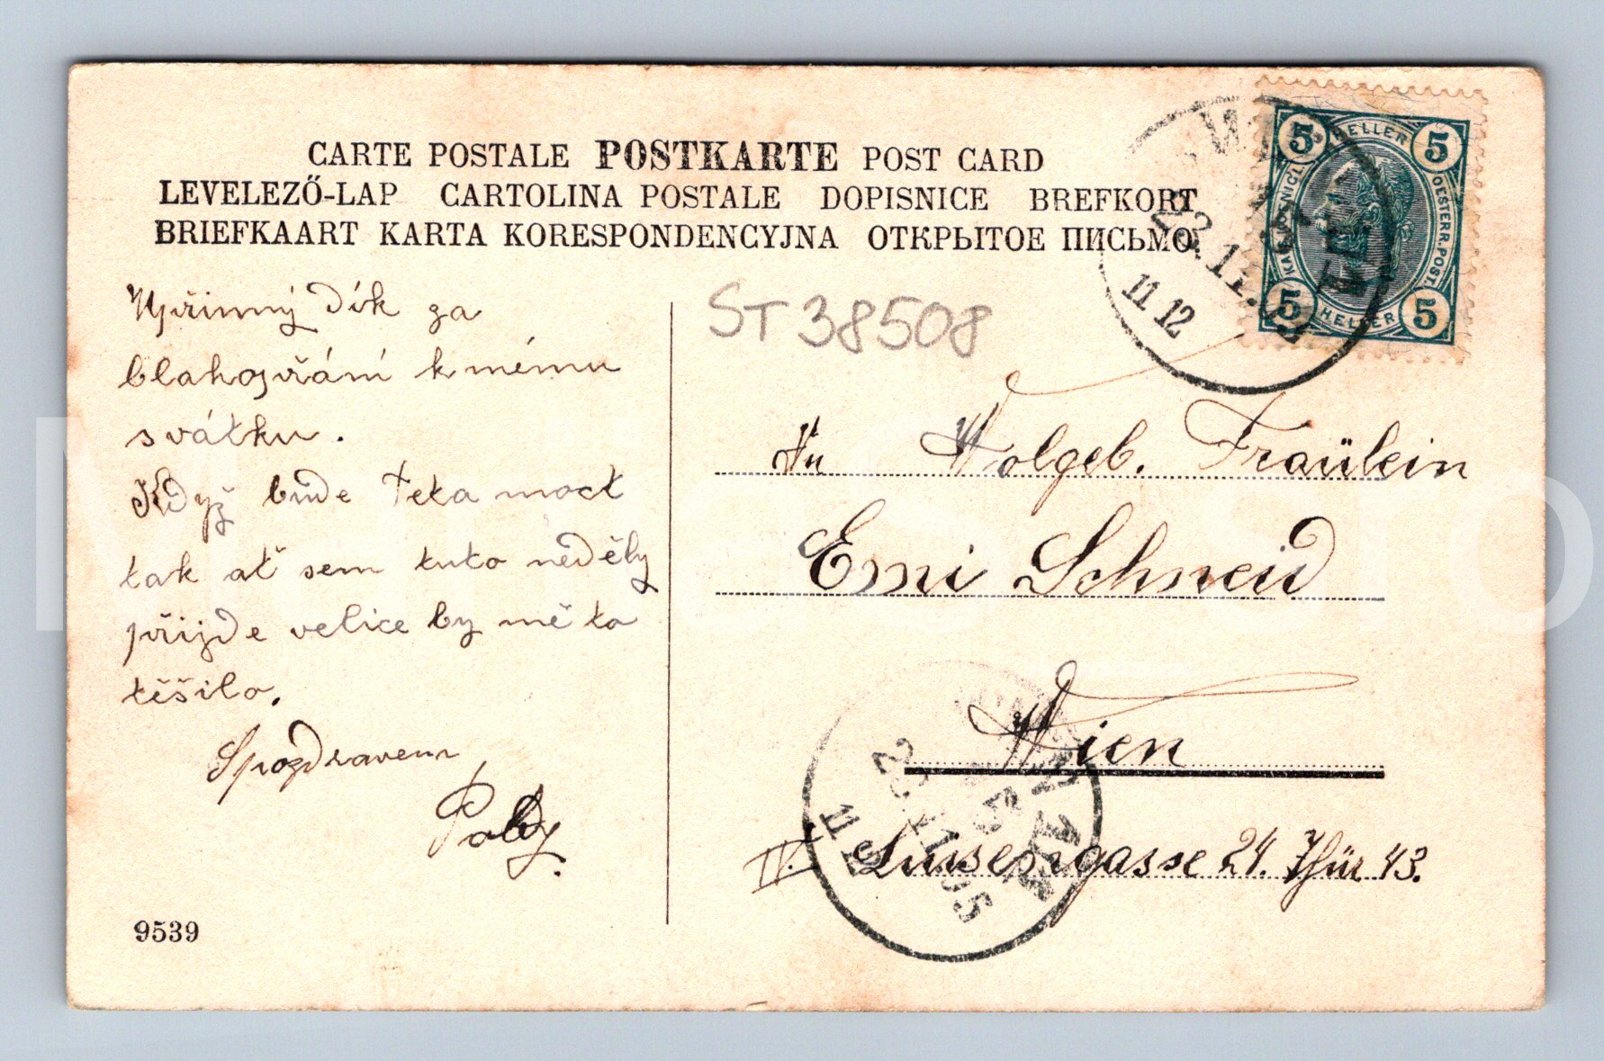 CARTE POSTALE POSTKARTE POST CARD
LEVELEZŐ-LAP CARTOLINA POSTALE DOPISNICE BREFKORT
BRIEFKAART KARTA KORESPONDENCYJNA ОТКРЫТОЕ ПИСЬМО
Upřinný dík za
blahopřání k mému
svátku.
Když bude Teta moct
tak ať sem tuto neděly
přijde velice by mě to
těšilo.
Spozdravem
Poldy.
9539
ST 38508
5 HELLER 5
OESTERR. POST.
5 HELLER 5
23. 11.
11 12
An Wolgeb. Fräulein
Emi Schneid
Wien
IV. Luisengasse 24. Thür 43.
WIEN
11